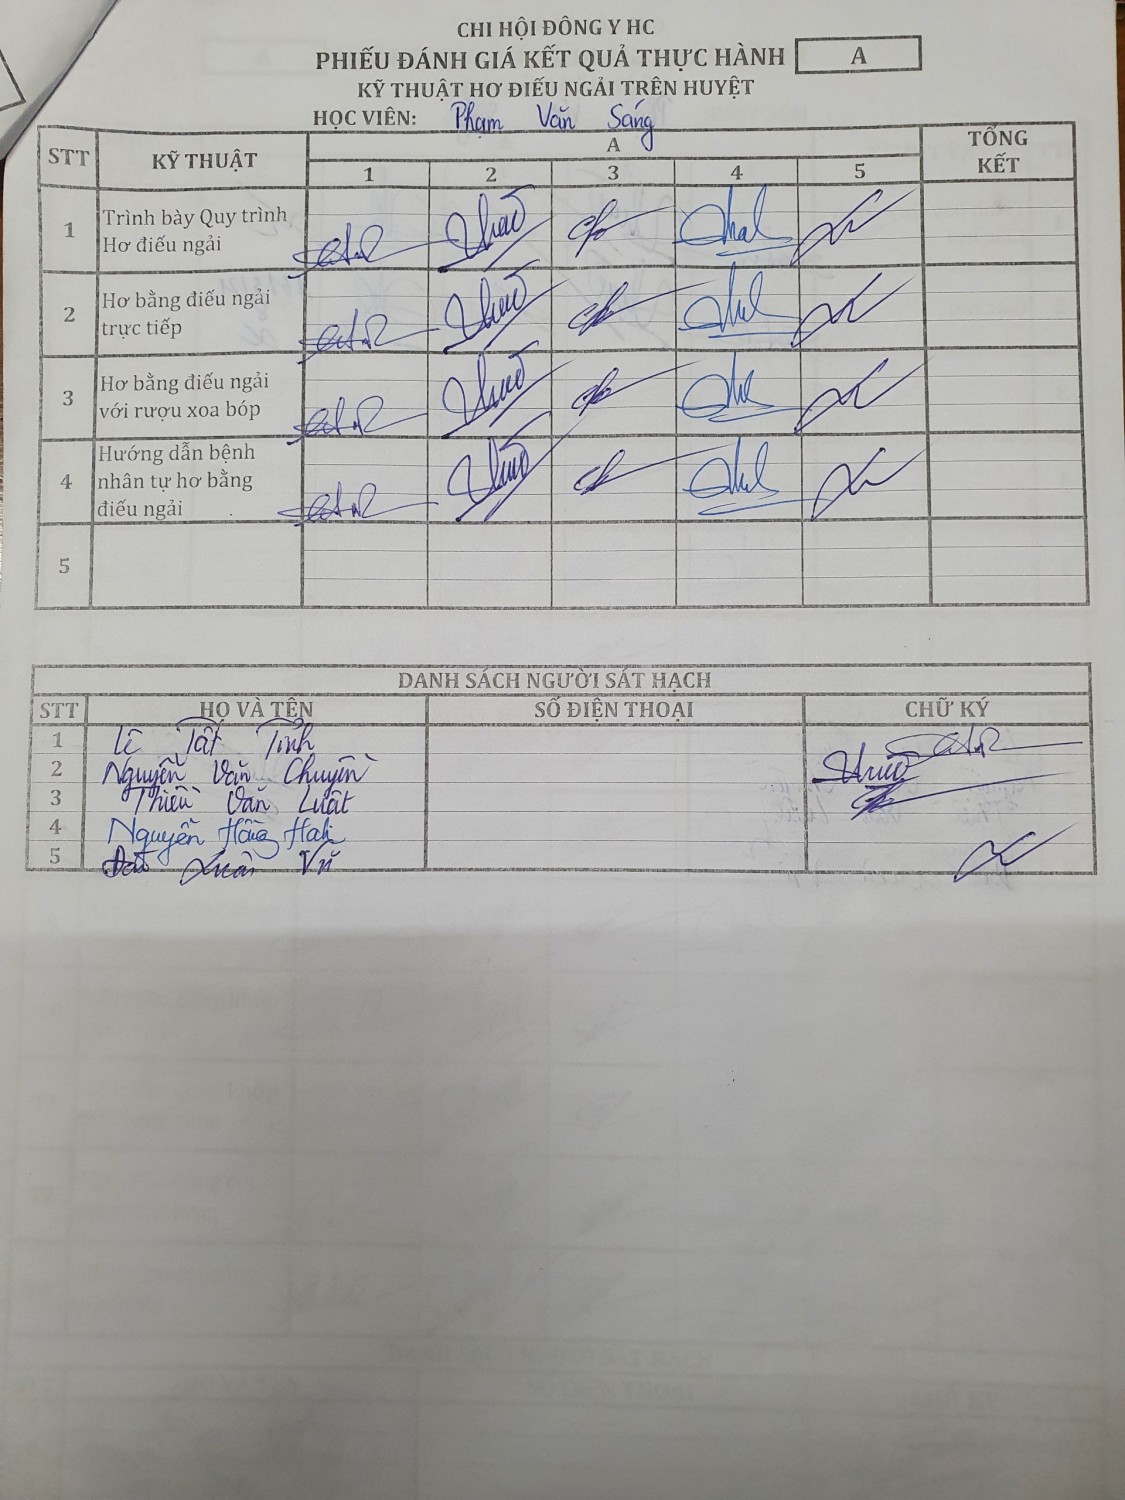 CHI HỘI ĐÔNG Y HC
PHIẾU ĐÁNH GIÁ KẾT QUẢ THỰC HÀNH A
KỸ THUẬT HƠ ĐIẾU NGẢI TRÊN HUYỆT
HỌC VIÊN: Phạm Văn Sáng
STT KỸ THUẬT A TỔNG KẾT
1 2 3 4 5
1 Trình bày Quy trình
Hơ điếu ngải
2 Hơ bằng điếu ngải
trực tiếp
3 Hơ bằng điếu ngải
với rượu xoa bóp
4 Hướng dẫn bệnh
nhân tự hơ bằng
điếu ngải
5
DANH SÁCH NGƯỜI SÁT HẠCH
STT HỌ VÀ TÊN SỐ ĐIỆN THOẠI CHỮ KÝ
1 Lê Tất Tĩnh
2 Nguyễn Văn Chuyên
3 Thiều Văn Luật
4 Nguyễn Hồng
5 Xuân